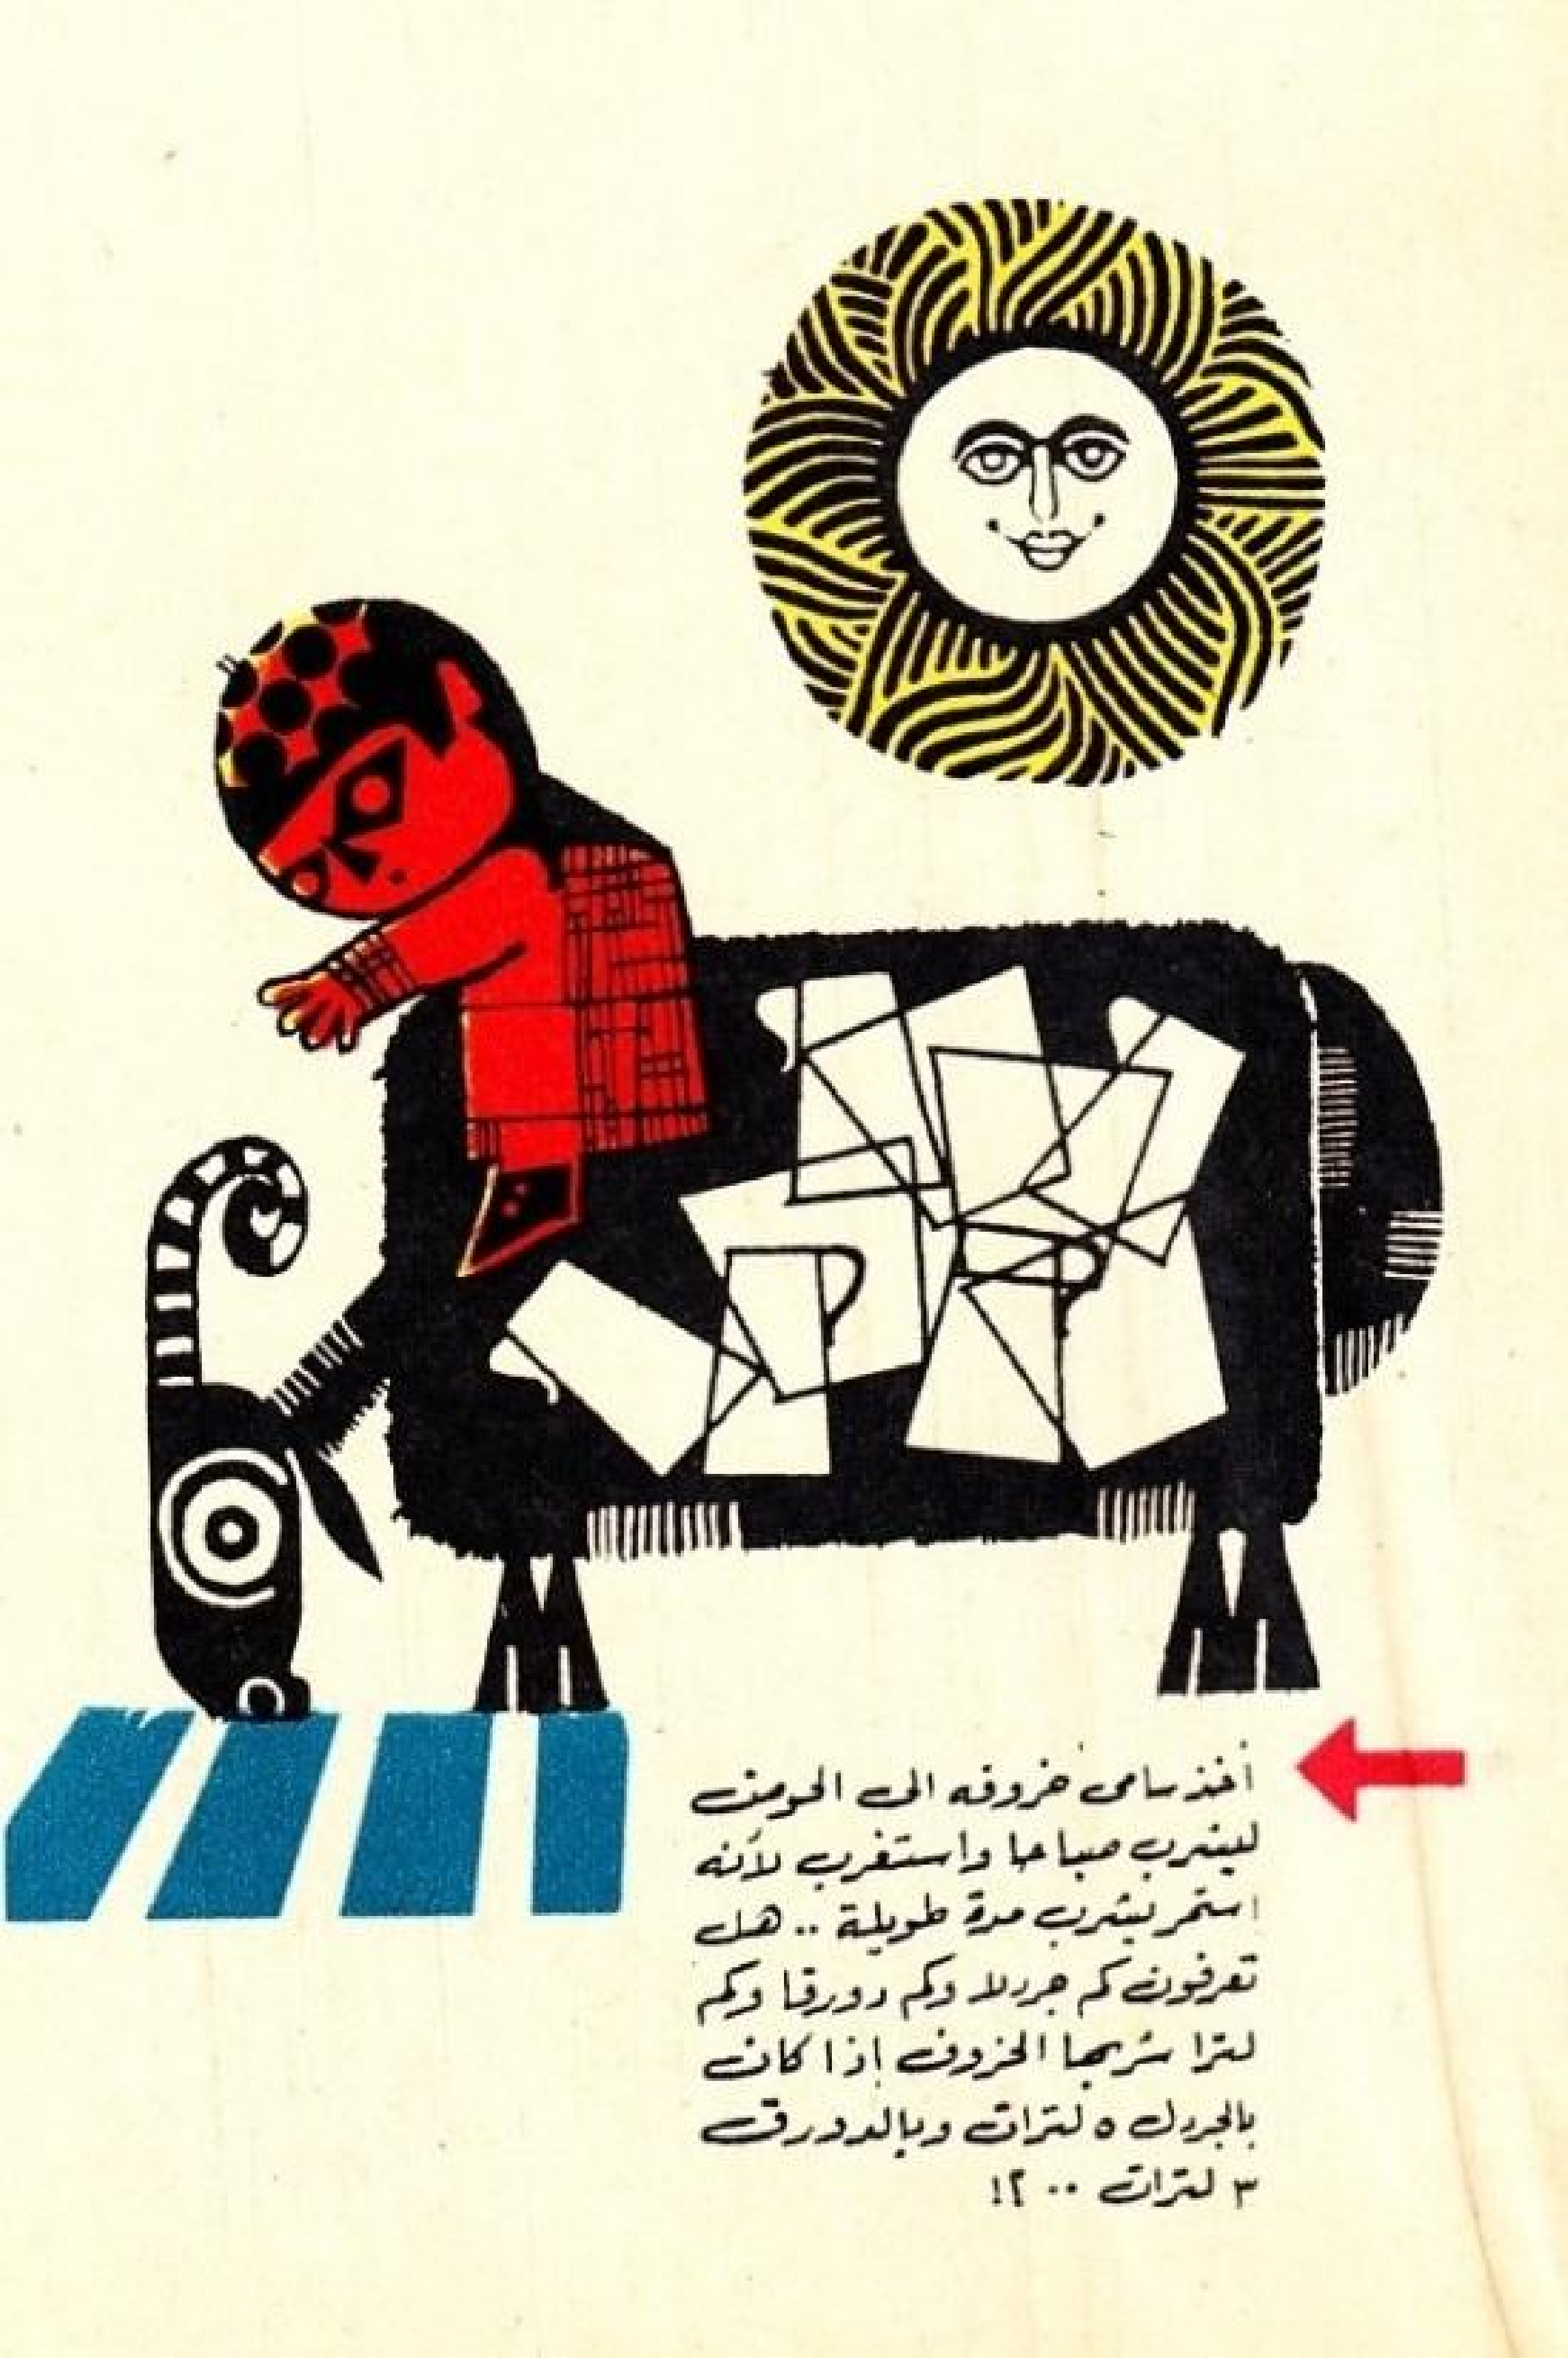 أخذ سامى خروفه الى الحوض
ليشرب صباحا واستغرب لأنه
استمر يشرب مدة طويلة .. هل
تعرفون كم جردلا وكم دورقا وكم
لترا شربها الخروف إذا كان
بالجردل ٥ لترات وبالدورق
٣ لترات ..؟!